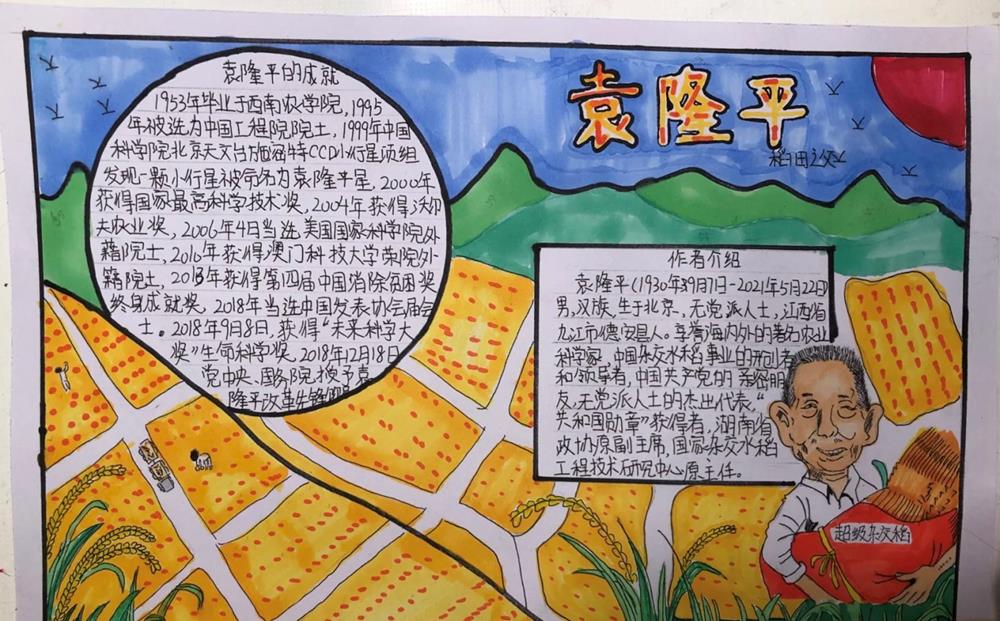 袁隆平
稻田之父
袁隆平的成就
1953年毕业于西南农学院,1995
年被选为中国工程院院士,1999年中国
科学院北京天文台施密特CCD小行星项组
发现一颗小行星被命名为袁隆平星,2000年
获得国家最高科学技术奖,2004年获得沃尔
夫农业奖,2006年4日当选美国国家科学院外
籍院士,2016年获得澳门科技大学荣院外
籍院士,2013年获得第四届中国消除贫困奖
终身成就奖,2018年当选中国发表协会届会
士。2018年9月8日,获得“未来科学大
奖”生命科学奖,2018年2月18日
党中央、国务院授予袁
隆平改革先锋
作者介绍
袁隆平(1930年39月7日-2021年5月22日)
男,汉族,生于北京,无党派人士,江西省
九江市德安县人。享誉海内外的著名农业
科学家,中国杂交水稻事业的开创者
和领导者,中国共产党的亲密朋
友,无党派人士的杰出代表,“
共和国勋章”获得者,湖南省
政协原副主席,国家杂交水稻
工程技术研究中心原主任。
超级杂交稻